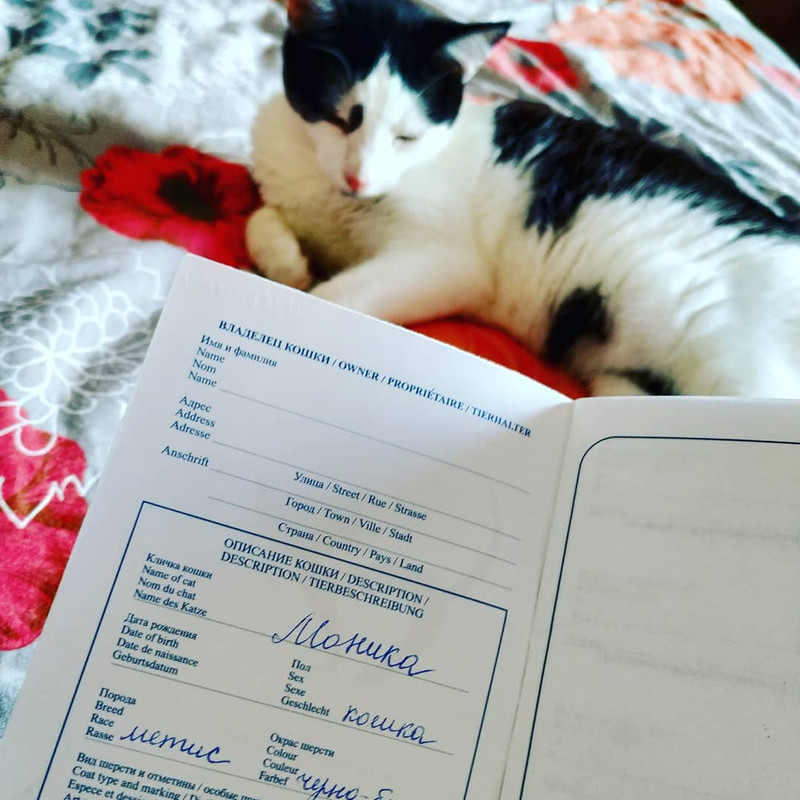 ВЛАДЕЛЕЦ КОШКИ / OWNER / PROPRIÉTAIRE / TIERHALTER
Имя и фамилия
Name
Nom
Name
Адрес
Address
Adresse
Anschrift
Улица / Street / Rue / Strasse
Город / Town / Ville / Stadt
Страна / Country / Pays / Land
ОПИСАНИЕ КОШКИ / DESCRIPTION /
DESCRIPTION / TIERBESCHREIBUNG
Кличка кошки
Name of cat
Nom du chat
Name des Katze
Моника
Дата рождения
Date of birth
Date de naissance
Geburtsdatum
Пол
Sex
Sexe
Geschlecht кошка
Порода
Breed
Race
Rasse метис
Окрас шерсти
Colour
Couleur
Farbef черно-б
Вид шерсти и отметины / особые
Coat type and marking /
Espece et